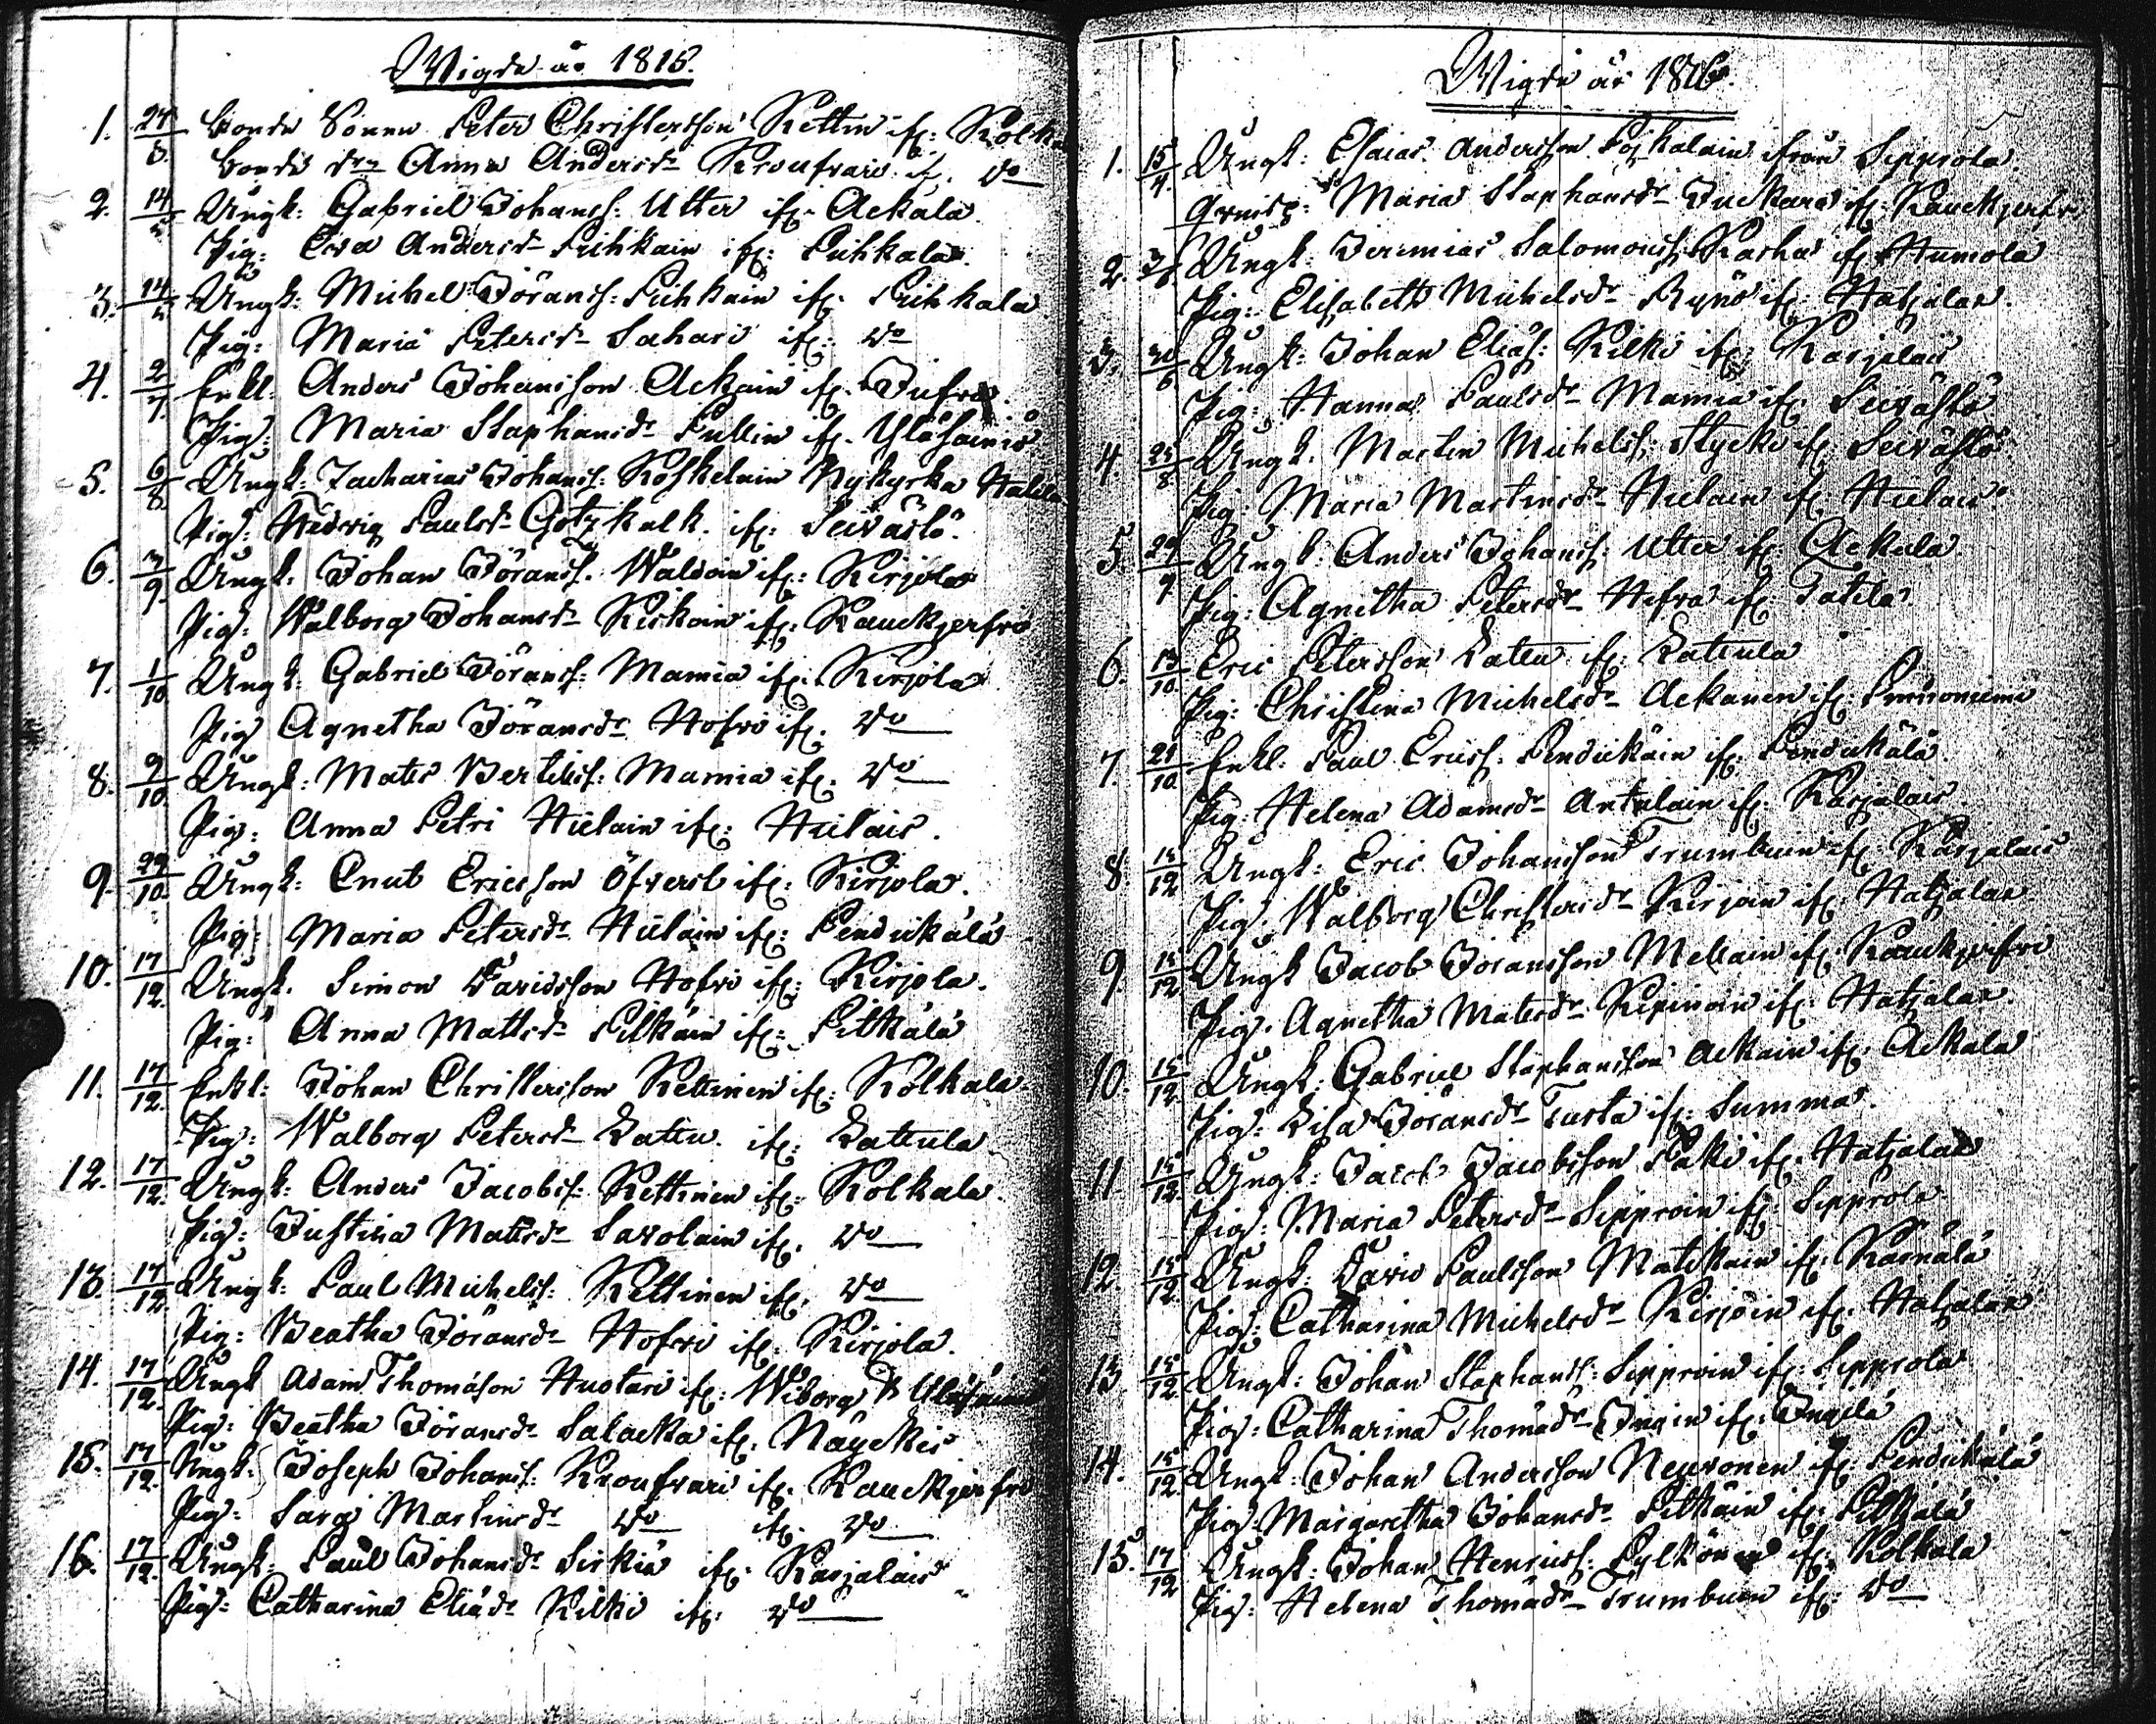 Wigde år 1815.
1. 24/3. bonde Sonen Peter Christersson Kettin ifr: Kolka
bonde dr Anna Andersdr Kroufvari ifr. do
2. 14/5 Ungk: Gabriel Johanss: Utter ifr: Ackala.
Pig: Eva Andersdr Puhkain ifr: Puhkala.
3. 14/5 Ungk: Michel Jöranss: Puhkain ifr. Puhkala
Pig: Maria Petersdr Sahari ifr: do
4. 2/7. Enkl. Anders Johansson Ackain ifr.
Pig: Maria Staphansdr Pullin ifr.
5. 6/8 Ungk: Zacharias Johanss: Koskelain Nykyrka
Pig: Hedvig Paulsdr Götzkalk. ifr: Seivästö.
6. 3/9. Ungk. Johan Jöranss. Waldoin ifr: Kirjola
Pig: Walborg Johansdr Kiskoin ifr: Rauckjerfvi
7. 1/10 Ungk: Gabriel Jöranss: Mamia ifr. Kirjola
Pig Agnetha Jöransdr Hofvi ifr. do
8. 9/10. Ungk: Mats Bertilss: Mamia ifr: do
Pig: Anna Petri Hielain ifr: Hielais.
9. 29/10. Ungk: Cnut Ericsson Öfverst ifr: Kirjola.
Pig: Maria Petersdr Hielain ifr: Pendickälä
10. 17/12. Ungk. Simon Davidsson Hofvi ifr: Kirjola.
Pig: Anna Mattsdr Pitkäin ifr: Pitkälä
11. 17/12. Enkl: Johan Christersson Kettinen ifr: Kolkala.
Pig: Walborg Petersdr Latu. ifr: Latula
12. 17/12. Ungk: Anders Jacobss: Kettinen ifr: Kolkala.
Pig: Justina Matsdr Savolain ifr. do
13. 17/12. Ungk: Paul Michelss: Kettinen ifr. do
Pig: Beatha Jöransdr Hofvi ifr: Kirjola.
14. 17/12. Ungk Adam Thomasson Huotari ifr: Wiborg
Pig: Beatha Jöransdr Salacka ifr: Näyckis
15. 17/12. Ungk: Joseph Johanss: Kroufvari ifr. Rauckjerfvi
Pig: Sara Martinsdr do ifr. do
16. 17/12. Ungk: Paul Johansdr Sirkiä ifr. Karjalais
Pig: Catharina Eliädr Kilki ifr: do
Wigde år 1816.
1. 15/4. Ungk: Esaias Andersson ifrån Sipprola
Maria Staphansdr Juckara ifr: Rauckjerfvi
2. 3/6. Ungk: Jeremias Salomonss: Karha ifr Humola
Pig: Elisabeth Michelsdr Rynö ifr: Hatjalax.
3. 30/6. Ungk: Johan Eliass: Kilki ifr: Karjalais
Pig: Hanna Paulsdr Mamia ifr: Seivästö
4. 25/8. Ungk. Martin Michelss: Stycki ifr Seivästö
Pig: Maria Martinsdr Hielain ifr Hielais
5. 29/9 Ungk: Anders Johanss: Utter ifr: Ackala
Pig: Agnetha Petersdr Hofva ifr: Tatila
6. 13/10. Eric Petersson Latu ifr: Latula
Pig: Christina Michelsdr Ackanen ifr:
7. 21/10. Enkl: Paul Ericss: Pendickäin ifr: Pendickälä
Pig: Helena Adamsdr Antulain ifr: Karjalais
8. 15/12 Ungk: Eric Johansson Trumbuin ifr: Karjalais
Pig: Walborg Christersdr Kirjoin ifr: Hatjalax
9. 15/12. Ungk Jacob Jöransson Mellain ifr: Rauckjerfvi
Pig: Agnetha Matsdr Kipinoin ifr: Hatjalax.
10. 15/12. Ungk: Gabriel Staphansson Ackain ifr: Ackala
Pig: Lisa Jöransdr Tusta ifr: Summa.
11. 15/12. Ungk: Jacob Jacobsson Paki ifr. Hatjalax
Pig: Maria Petersdr Sipproin ifr: Sipprola
12. 15/12. Ungk: David Paulsson Matckain ifr: Kaenälä
Pig: Catharina Michelsdr Kirjoin ifr. Hatjalax
13. 15/12. Ungk: Johan Staphanss: Sipproin ifr: Sipprola
Pig: Catharina Thomadr Ingin ifr: Ingilä
14. 15/12. Ungk: Johan Andersson Neuvonen ifr: Pendickälä
Pig: Margaretha Johansdr Pitkäin ifr: Pitkälä
15. 17/12 Ungk: Johan Henricss: Pylkönen ifr: Kolkala
Pig: Helena Thomadr Trumbuin ifr: do